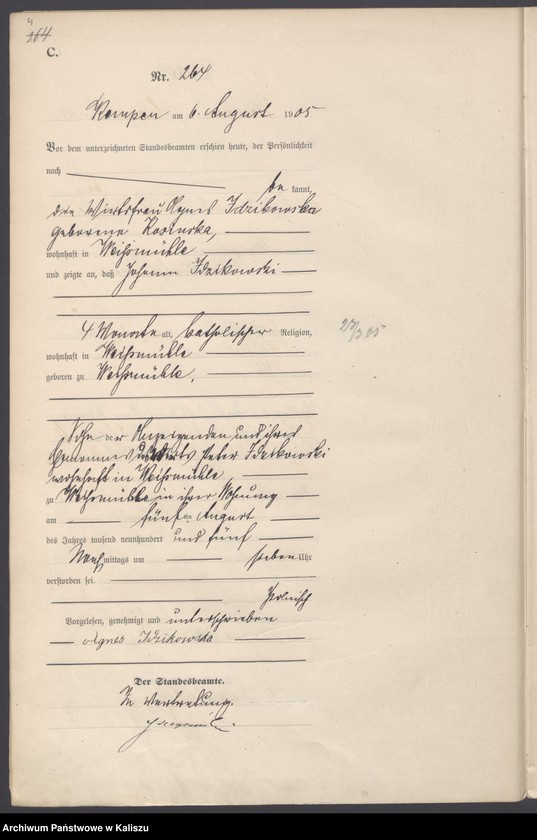 4
264
C.
Nr. 264
Kempen am 6. August 1905
Vor dem unterzeichneten Standesbeamten erschien heute, der Persönlichkeit
nach
be kannt,
die Wirtsfrau Agnes Idzikowska
geborene Kosinska,
wohnhaft in Weißmühle
und zeigte an, daß Johann Idzikowski
4 Monate alt, katholischer Religion,
27/3 05
wohnhaft in Weißmühle
geboren zu Weißmühle,
Sohn der Anzeigenden und ihres
Ehemannes Peter Idzikowski
wohnhaft in Weißmühle
zu Weißmühle in ihrer Wohnung
am fünften August
des Jahres tausend neunhundert und fünf
Nachmittags um sieben Uhr
verstorben sei.
polnisch
Vorgelesen, genehmigt und unterschrieben
Agnes Idzikowska
Der Standesbeamte.
In Vertretung.
Archiwum Państwowe w Kaliszu